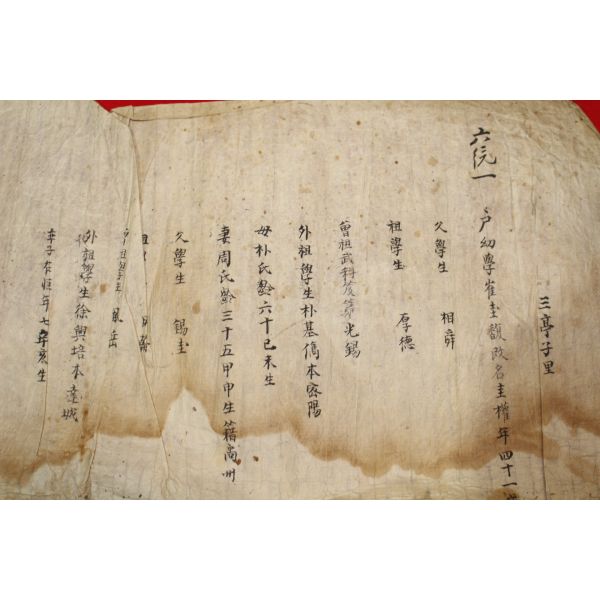 三亭子里
六統一 戶幼學崔圭馥改名圭權年四十一
父學生 相舜
祖學生 厚德
曾祖武科及第光錫
外祖學生朴基儁本密陽
母朴氏齡六十己未生
妻周氏齡三十五甲申生籍尙州
父學生 錫圭
祖
外祖學生徐興培本達城
率子 年七 亥生